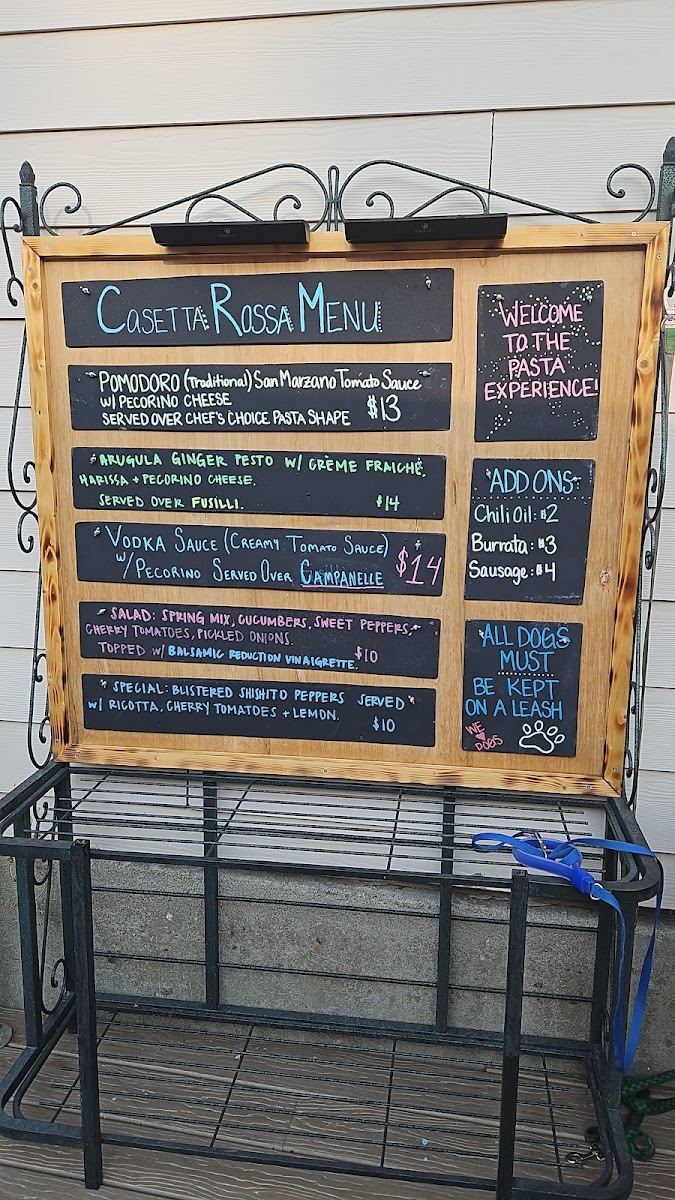 Casetta Rossa Menu
POMODORO (Traditional) San Marzano Tomato Sauce
W/ PECORINO CHEESE
SERVED OVER CHEF'S CHOICE PASTA SHAPE $13
ARUGULA GINGER PESTO W/ CRÈME FRAICHE,
HARISSA + PECORINO CHEESE.
SERVED OVER FUSILLI. $14
VODKA SAUCE (CREAMY TOMATO SAUCE)
W/ PECORINO SERVED OVER CAMPANELLE $14
SALAD: SPRING MIX, CUCUMBERS, SWEET PEPPERS,
CHERRY TOMATOES, PICKLED ONIONS.
TOPPED W/ BALSAMIC REDUCTION VINAIGRETTE. $10
SPECIAL: BLISTERED SHISHITO PEPPERS SERVED
W/ RICOTTA, CHERRY TOMATOES + LEMON. $10
WELCOME
TO THE
PASTA
EXPERIENCE!
ADD ONS
Chili Oil: $2
Burrata: $3
Sausage: $4
ALL DOGS
MUST
BE KEPT
ON A LEASH
WE
DOGS